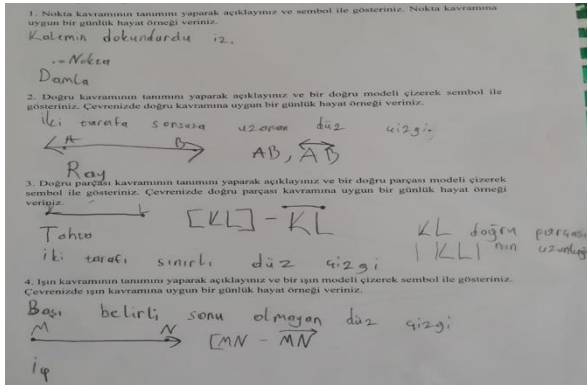 1. Nokta kavramının tanımını yaparak açıklayınız ve sembol ile gösteriniz. Nokta kavramına
uygun bir günlük hayat örneği veriniz.
Kalemin dokundurdu iz.
.-Nokta
Damla
2. Doğru kavramının tanımını yaparak açıklayınız ve bir doğru modeli çizerek sembol ile
gösteriniz. Çevrenizde doğru kavramına uygun bir günlük hayat örneği veriniz.
İki tarafa sonsuza uzanan düz çizgi.
A B AB, AB
Ray
3. Doğru parçası kavramının tanımını yaparak açıklayınız ve bir doğru parçası modeli çizerek
sembol ile gösteriniz. Çevrenizde doğru parçası kavramına uygun bir günlük hayat örneği
veriniz.
[KL] - KL KL doğru parçası
Tahta |KL|'nın uzunluğu
iki tarafı sınırlı düz çizgi
4. Işın kavramının tanımını yaparak açıklayınız ve bir ışın modeli çizerek sembol ile gösteriniz.
Çevrenizde ışın kavramına uygun bir günlük hayat örneği veriniz.
Başı belirli sonu olmayan düz çizgi
M N [MN - MN
ip